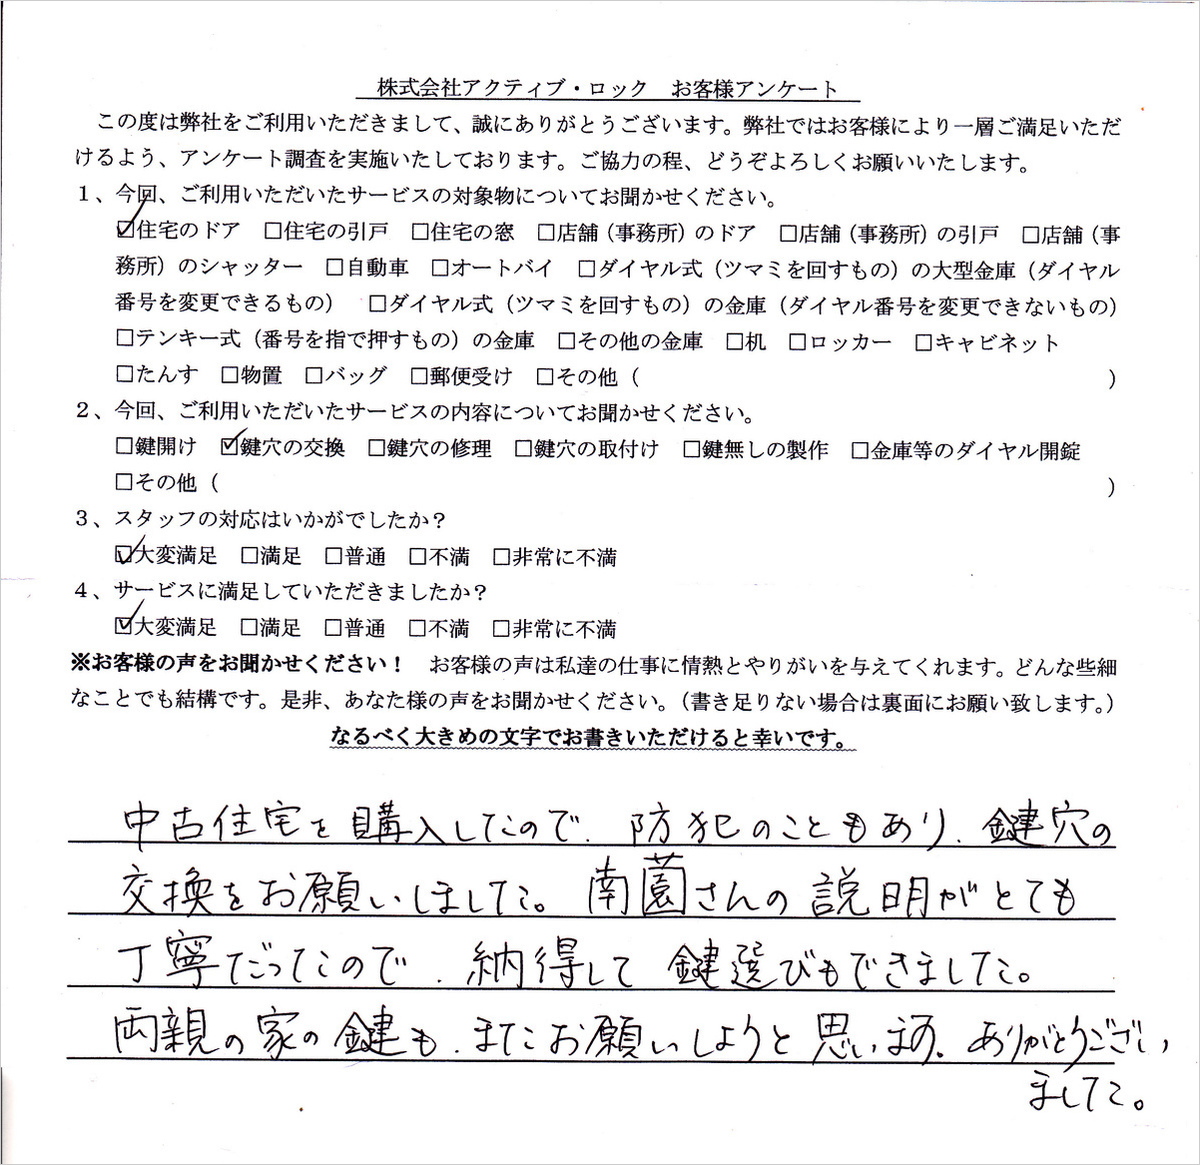 株式会社アクティブ・ロック　お客様アンケート
この度は弊社をご利用いただきまして、誠にありがとうございます。弊社ではお客様により一層ご満足いただ
けるよう、アンケート調査を実施いたしております。ご協力の程、どうぞよろしくお願いいたします。
1、今回、ご利用いただいたサービスの対象物についてお聞かせください。
☑住宅のドア　□住宅の引戸　□住宅の窓　□店舗（事務所）のドア　□店舗（事務所）の引戸　□店舗（事
務所）のシャッター　□自動車　□オートバイ　□ダイヤル式（ツマミを回すもの）の大型金庫（ダイヤル
番号を変更できるもの）　□ダイヤル式（ツマミを回すもの）の金庫（ダイヤル番号を変更できないもの）
□テンキー式（番号を指で押すもの）の金庫　□その他の金庫　□机　□ロッカー　□キャビネット
□たんす　□物置　□バッグ　□郵便受け　□その他（　　　　　　　　　　）
2、今回、ご利用いただいたサービスの内容についてお聞かせください。
□鍵開け　☑鍵穴の交換　□鍵穴の修理　□鍵穴の取付け　□鍵無しの製作　□金庫等のダイヤル開錠
□その他（　　　　　　　　　　）
3、スタッフの対応はいかがでしたか？
☑大変満足　□満足　□普通　□不満　□非常に不満
4、サービスに満足していただきましたか？
☑大変満足　□満足　□普通　□不満　□非常に不満
※お客様の声をお聞かせください！　お客様の声は私達の仕事に情熱とやりがいを与えてくれます。どんな些細
なことでも結構です。是非、あなた様の声をお聞かせください。（書き足りない場合は裏面にお願い致します。）
なるべく大きめの文字でお書きいただけると幸いです。
中古住宅を購入したので、防犯のこともあり、鍵穴の
交換をお願いしました。南薗さんの説明がとても
丁寧だったので、納得して鍵選びもできました。
両親の家の鍵も、またお願いしようと思います。ありがとうござい
ました。